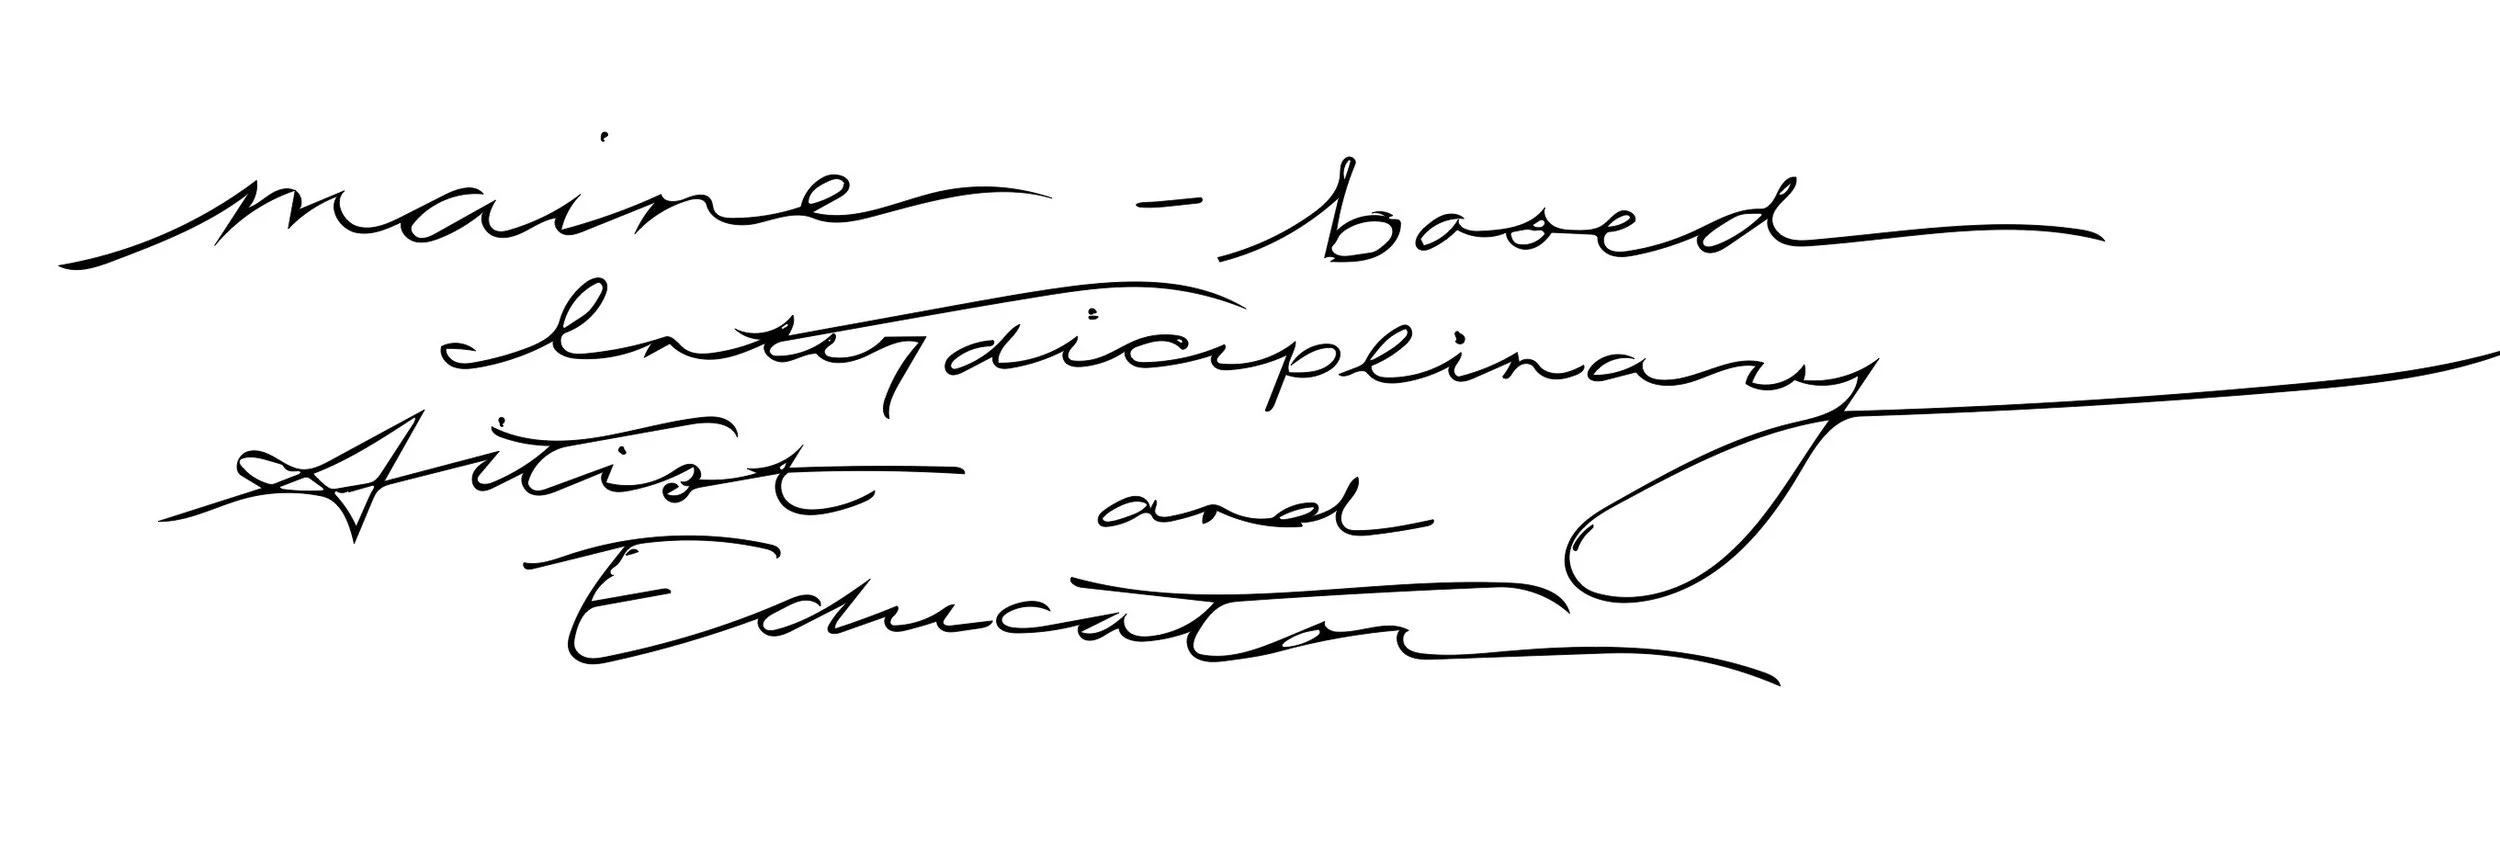 maine - based
Interdisciplinary
Artist and
Educator